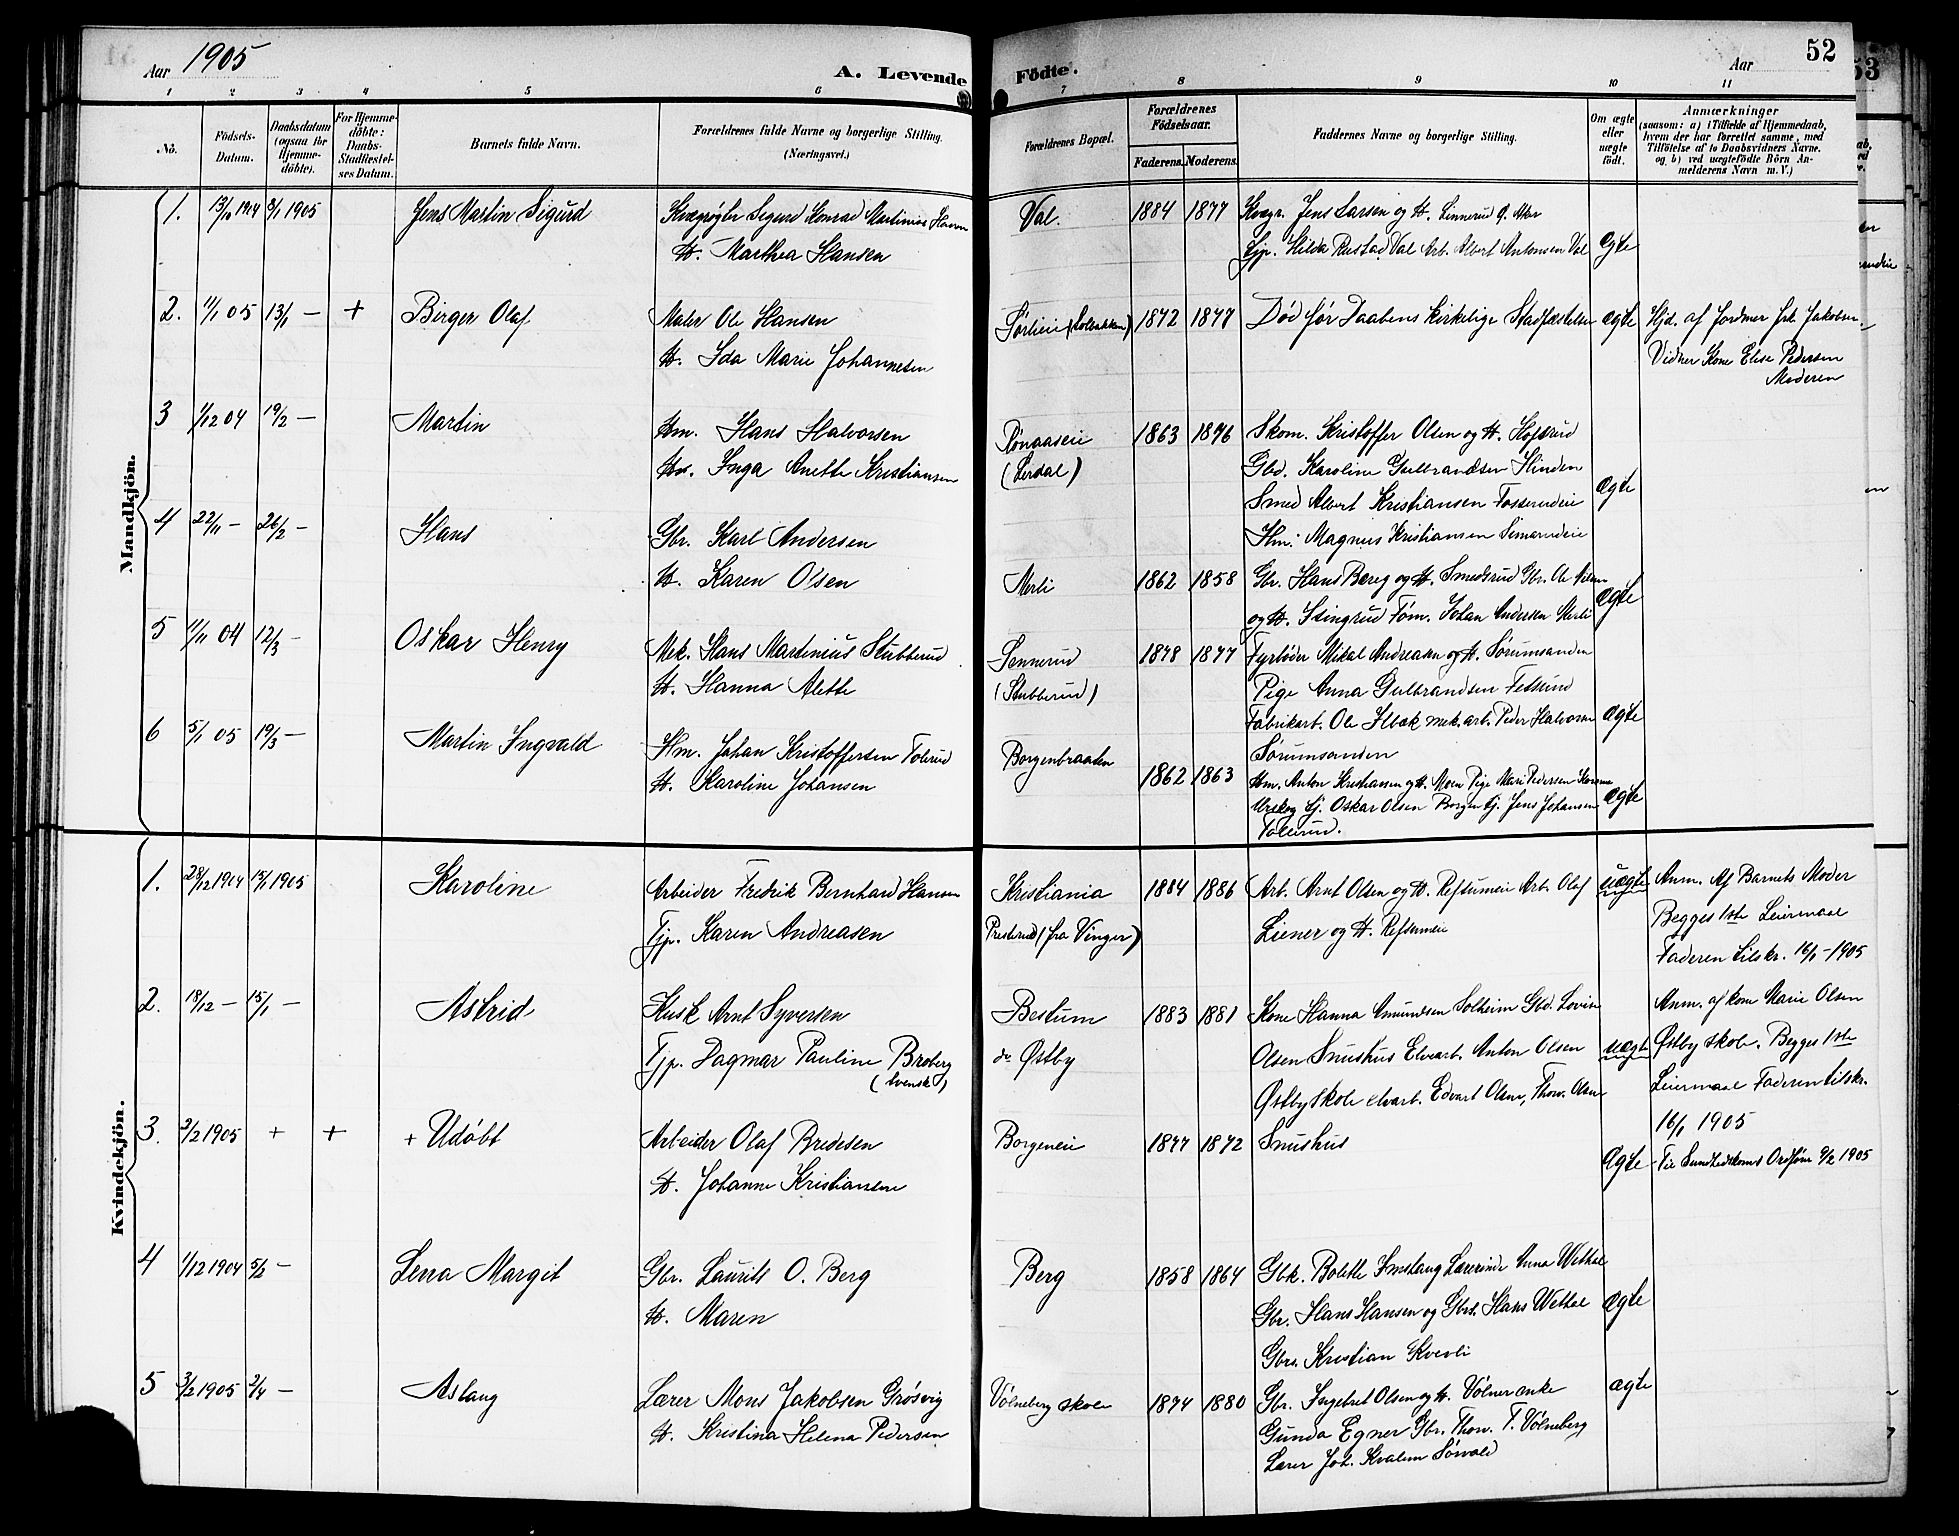 Aar 1905
A. Levende Fødte.
Aar
52
1 2 3 4 5 6 7 8 9 10 11
No.
Födsels-Datum.
Daabsdatum (ogsaa for Hjemme-døbte).
For Hjemme-døbte: Daabs-Stadfæstel-ses Datum.
Barnets fulde Navn.
Forældrenes fulde Navne og borgerlige Stilling. (Næringsvei.)
Forældrenes Bopæl.
Forældrenes Födselsaar.
Faderens. Moderens.
Faddernes Navne og borgerlige Stilling.
Om ægte eller uægte födt.
Anmærkninger
(saasom: a) i Tilfælde af Hjemmedaab,
hvem der har forrettet samme, med
Tilföielse af to Daabsvidners Navne.
og b) ved uægtefödte Börn An-
melderens Navn m. V.)
Mandkjön.
1. 1904 8/1 1905 Jens Martin Sigurd Sigurd Konrad Martinius Hansen Val. 1884 1877 Jens Larsen og H. Linnerud
H. Marthea Hansen Tjp. Hilda Rustad Val Arb. Albert Antonsen Val ægte
2. 11/1 05 13/1 — + Birger Olaf Maler Ole Hansen Sørlieie 1872 1877 Død før Daabens kirkelige Stadfæstelse ægte Hjd. af Jordmor Frk Jakobsen
H. Ida Marie Johannesen Vidner Kone Elise Pedersen
Moderen
3 1/12 04 19/2 — Martin Hm. Hans Halvorsen Rønaaseie 1863 1876 Skom. Kristoffer Olsen og H. Hofsrud
Inga Anette Kristiansen (Lerdal) Gbd. Karoline Gulbrandsen Hinden
Smed Albert Kristiansen Fosserudeie ægte
Hm. Magnus Kristiansen
4 22/11 — 26/2 — Hans Gbr. Karl Andersen
H. Karen Olsen Merli 1862 1858 Gbr. Hans Berg og H. Smedsrud Gbr. Ole ægte
og H. Stingrud Tøm. Johan Andersen Merli
5 11/11 04 12/3 — Oskar Henry Mek. Hans Martinius Stubberud Sennerud 1878 1877 Fyrbøder Mikal Andreasen og H. Sørumsanden
H. Hanna Alette (Stubberud) Pige Anna Gulbrandsen Fetsund
Fabrikarb. Ole Ilbæk mek. arb. Peder Halvorsen ægte
Sørumsanden
6 5/1 05 19/3 — Martin Ingvald Hm. Johan Kristoffersen Tolerud Borgenbraaten
H. Karoline Johansen 1862 1863 Hm. Anton Kristiansen og H. Moen Pige Mari Pedersen
Urskog Oskar Olsen Borgen Jens Johansen ægte
Tolerud.
Kvindekjön.
1. 28/12 1904 15/1 1905 Karoline Arbeider Fredrik Bernhard Hansen Kristiania 1884 1886 Arb. Arnt Olsen og H. Refsumeie Arb. Olaf uægte Anm. Af Barnets Moder
Tjp. Karen Andreasen Presterud (fra Vinger) Liener og H. Refsumeie Begges 1ste Leiermaal
Faderen tilskr. 16/1-1905
2. 18/12 — 15/1 — Astrid Kusk Arnt Syversen Bestum 1883 1881 Kone Hanna Amundsen Solheim Gbd. Lovise Anm. af kone Marie Olsen
Tjp. Dagmar Pauline Broberg do Østby Olsen Snushus Elvearb. Anton Olsen uægte Østby skole. Begges 1ste
(svensk) Østby skole elvarb. Edvart Olsen, Thorv. Olsen Leiermaal Faderen tilskr.
16/1 1905
3. 2/2 1905 + + + Udøbt Arbeider Olaf Bredesen Borgeneie 1877 1872 Snushus
H. Johanne Kristiansen ægte Til Sundhedskoms Ordfører 9/2 1905
4 1/12 1904 5/2 — Lena Margit Gbr. Laurits O. Berg Berg 1858 1864 Gbk. Bolette Smstang Lærerinde Anna Wethal
H. Maren Gbr. Hans Hansen og Gbrs. Hans Wethal ægte
Gbrs. Kristian Kverli
5 3/2 1905 2/4 — Aslaug Lærer Mons Jakobsen Grøsvig Vølneberg skole 1874 1880 Gbr. Ingebret Olsen og H. Vølner enke ægte
H. Kristina Helena Pedersen Gunda Egner Gbr. Thorv. T. Vølneberg
Lærer Joh. Kvalem Sørvald
53